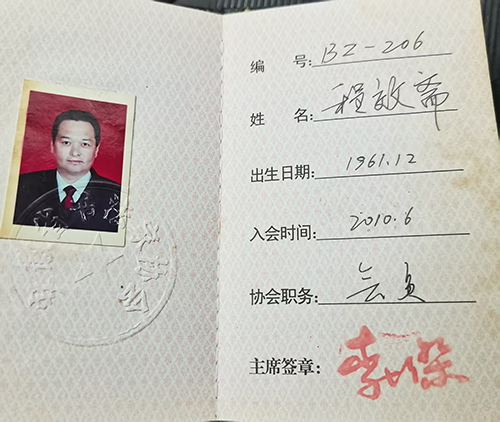 编 号: BZ-206
姓 名: 程效斋
出生日期: 1961.12
入会时间: 2010.6
协会职务: 会员
主席签章: